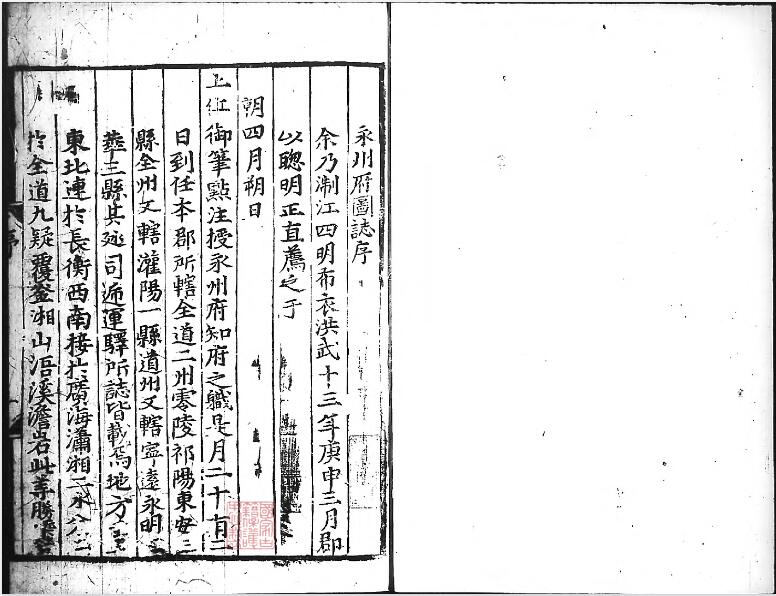 永州府圖誌序
余乃淛江四明布衣洪武十三年庚申三月郡
以聦明正直薦之于
朝四月朔日
上御筆㸃注授永州府知府之職是月二十有二
日到任本郡所轄全道二州零陵祁陽東安三
縣全州又轄灌陽一縣道州又轄寧遠永明
華三縣其廵司逓運驛所誌皆載焉地方
東北連於長衡西南接於廣海瀟湘二水分
於全道九疑覆釜湘山浯溪澹岩此等勝
序